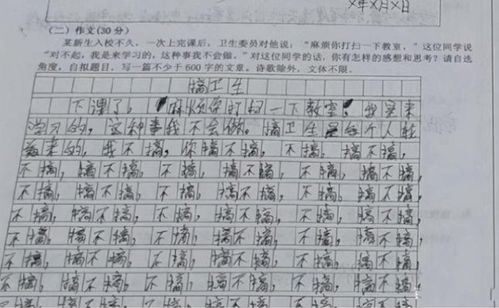 ×年×月×日
(二)作文(30分)
某新生入校不久,一次上完课后,卫生委员对他说:“麻烦你打扫一下教室。”这位同学说
“对不起,我是来学习的,这种事我不会做。”对这位同学的话,你有怎样的感想和思考?请自选
角度,自拟题目,写一篇不少于600字的文章。诗歌除外,文体不限。
搞卫生
下课了,麻烦你打扫一下教室,我是来
学习的,这种事我不会做。搞卫生是每个人
来的,我不搞,你搞不搞,不搞,搞不搞,
不搞,搞不搞,不搞,搞不搞,不搞,搞不搞,
不搞,搞不搞,不搞,搞不搞,不搞,搞不搞,
不搞,搞不搞,不搞,搞不搞,不搞,搞不搞,
不搞,搞不搞,不搞,搞不搞,不搞,搞不搞,
不搞,搞不搞,不搞,搞不搞,不搞,搞不搞,
不搞,搞不搞,不搞,搞不搞,不搞,搞不搞,
不搞,搞不搞,不搞,搞不搞,不搞,搞不搞,